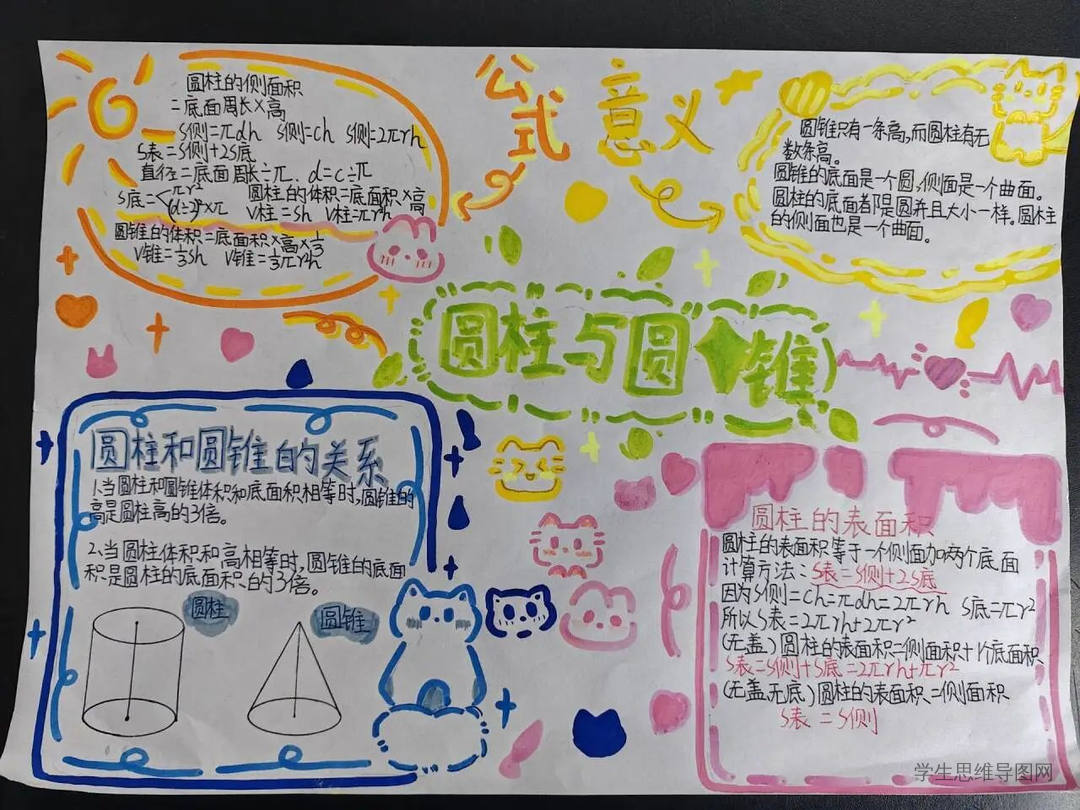 公式 意义
圆柱的侧面积
=底面周长×高
S侧=πdh S侧=ch S侧=2πrh
S表=S侧+2S底
直径=底面周长÷π、d=c÷π
S底=<πr²
(d÷2)²×π
圆柱的体积=底面积×高
V柱=sh V柱=πr²h
圆锥的体积=底面积×高×⅓
V锥=⅓sh V锥=⅓πr²h
圆锥只有一条高,而圆柱有无
数条高。
圆锥的底面是一个圆,侧面是一个曲面。
圆柱的底面都是圆并且大小一样。圆柱
的侧面也是一个曲面。
圆柱与圆锥
圆柱和圆锥的关系
1.当圆柱和圆锥体积和底面积相等时,圆锥的
高是圆柱高的3倍。
2、当圆柱体积和高相等时,圆锥的底面
积是圆柱的底面积的3倍。
圆柱
圆锥
圆柱的表面积
圆柱的表面积等于一个侧面加两个底面
计算方法:S表=S侧+2S底
因为S侧=ch=πdh=2πrh S底=πr²
所以S表=2πrh+2πr²
(无盖)圆柱的表面积=侧面积+1个底面积
S表=S侧+S底=2πrh+πr²
(无盖无底)圆柱的表面积=侧面积
S表=S侧
学生思维导图网